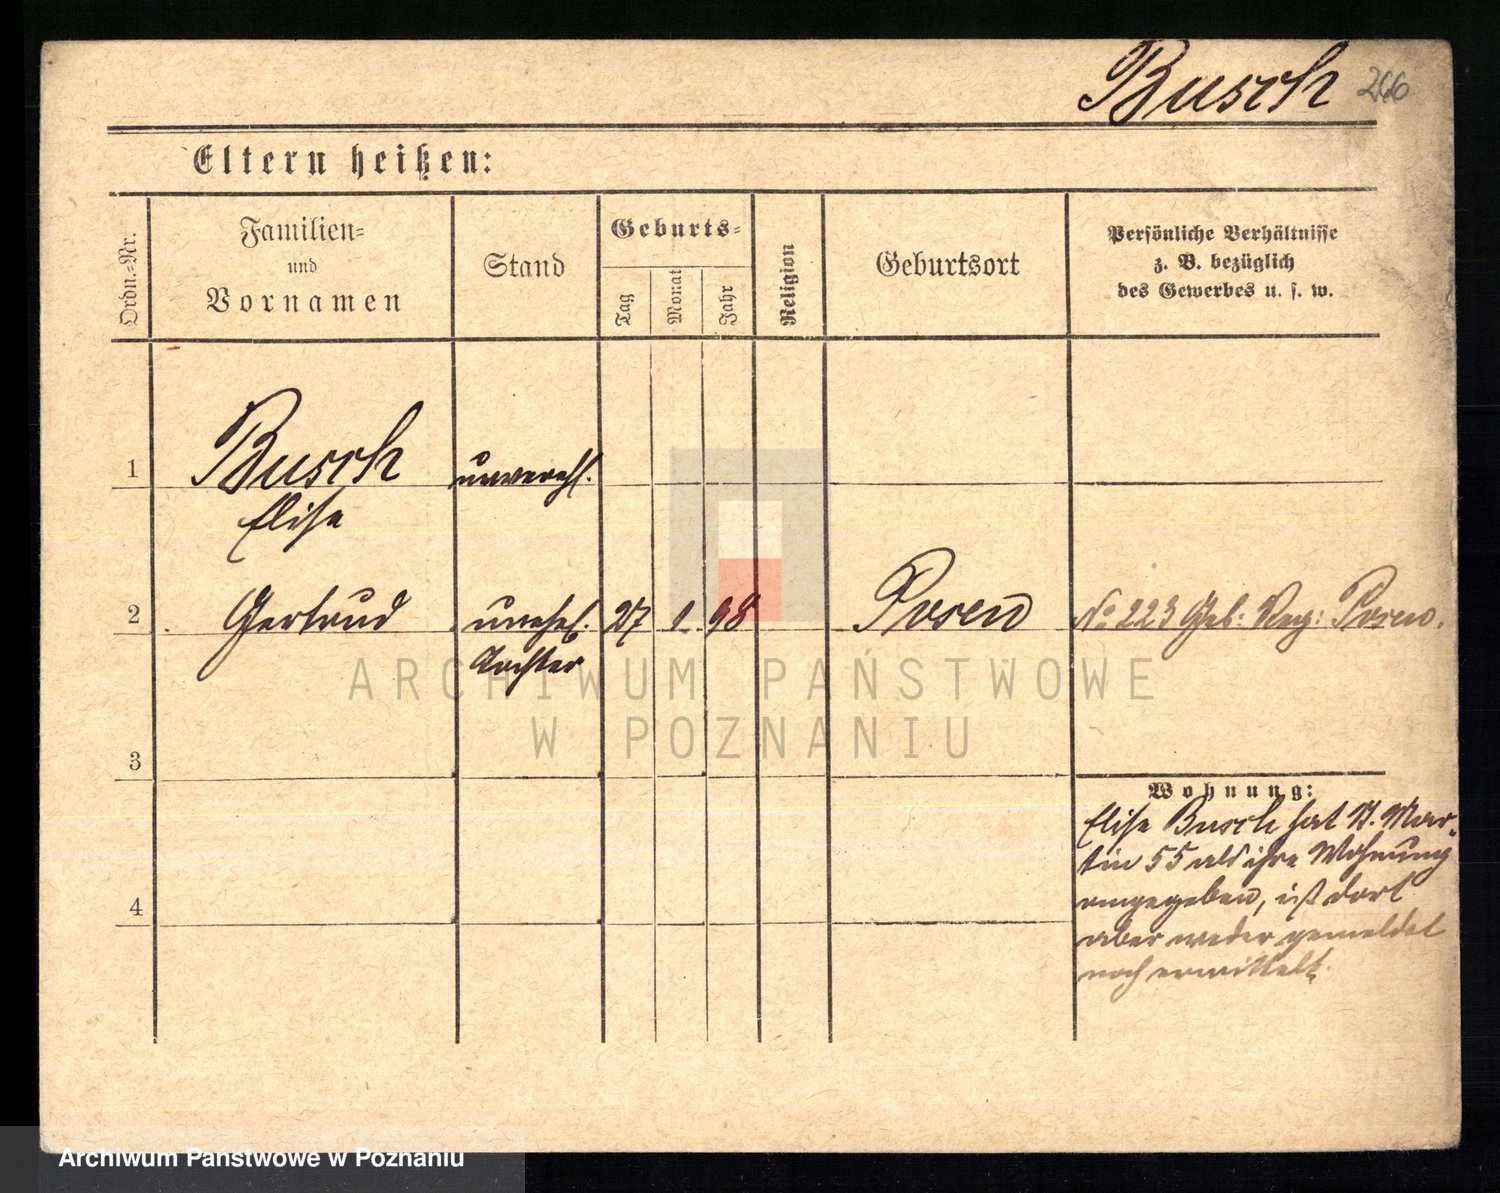 Busch 266
Eltern heißen:
Ordn.-Nr.
Familien-
und
Vornamen
Stand
Geburts-
Tag
Monat
Jahr
Religion
Geburtsort
Persönliche Verhältnisse
z. B. bezüglich
des Gewerbes u. s. w.
1 Busch unverehl.
Elise
2 Gertrud unehel. 27 1 98 Posen No 223 Geb: Reg: Posen.
Tochter
3
4
Wohnung:
Elise Busch hat St. Mar-
tin 55 als ihre Wohnung
angegeben, ist dort
aber weder gemeldet
noch ermittelt.
ARCHIWUM PAŃSTWOWE
W POZNANIU
Archiwum Państwowe w Poznaniu